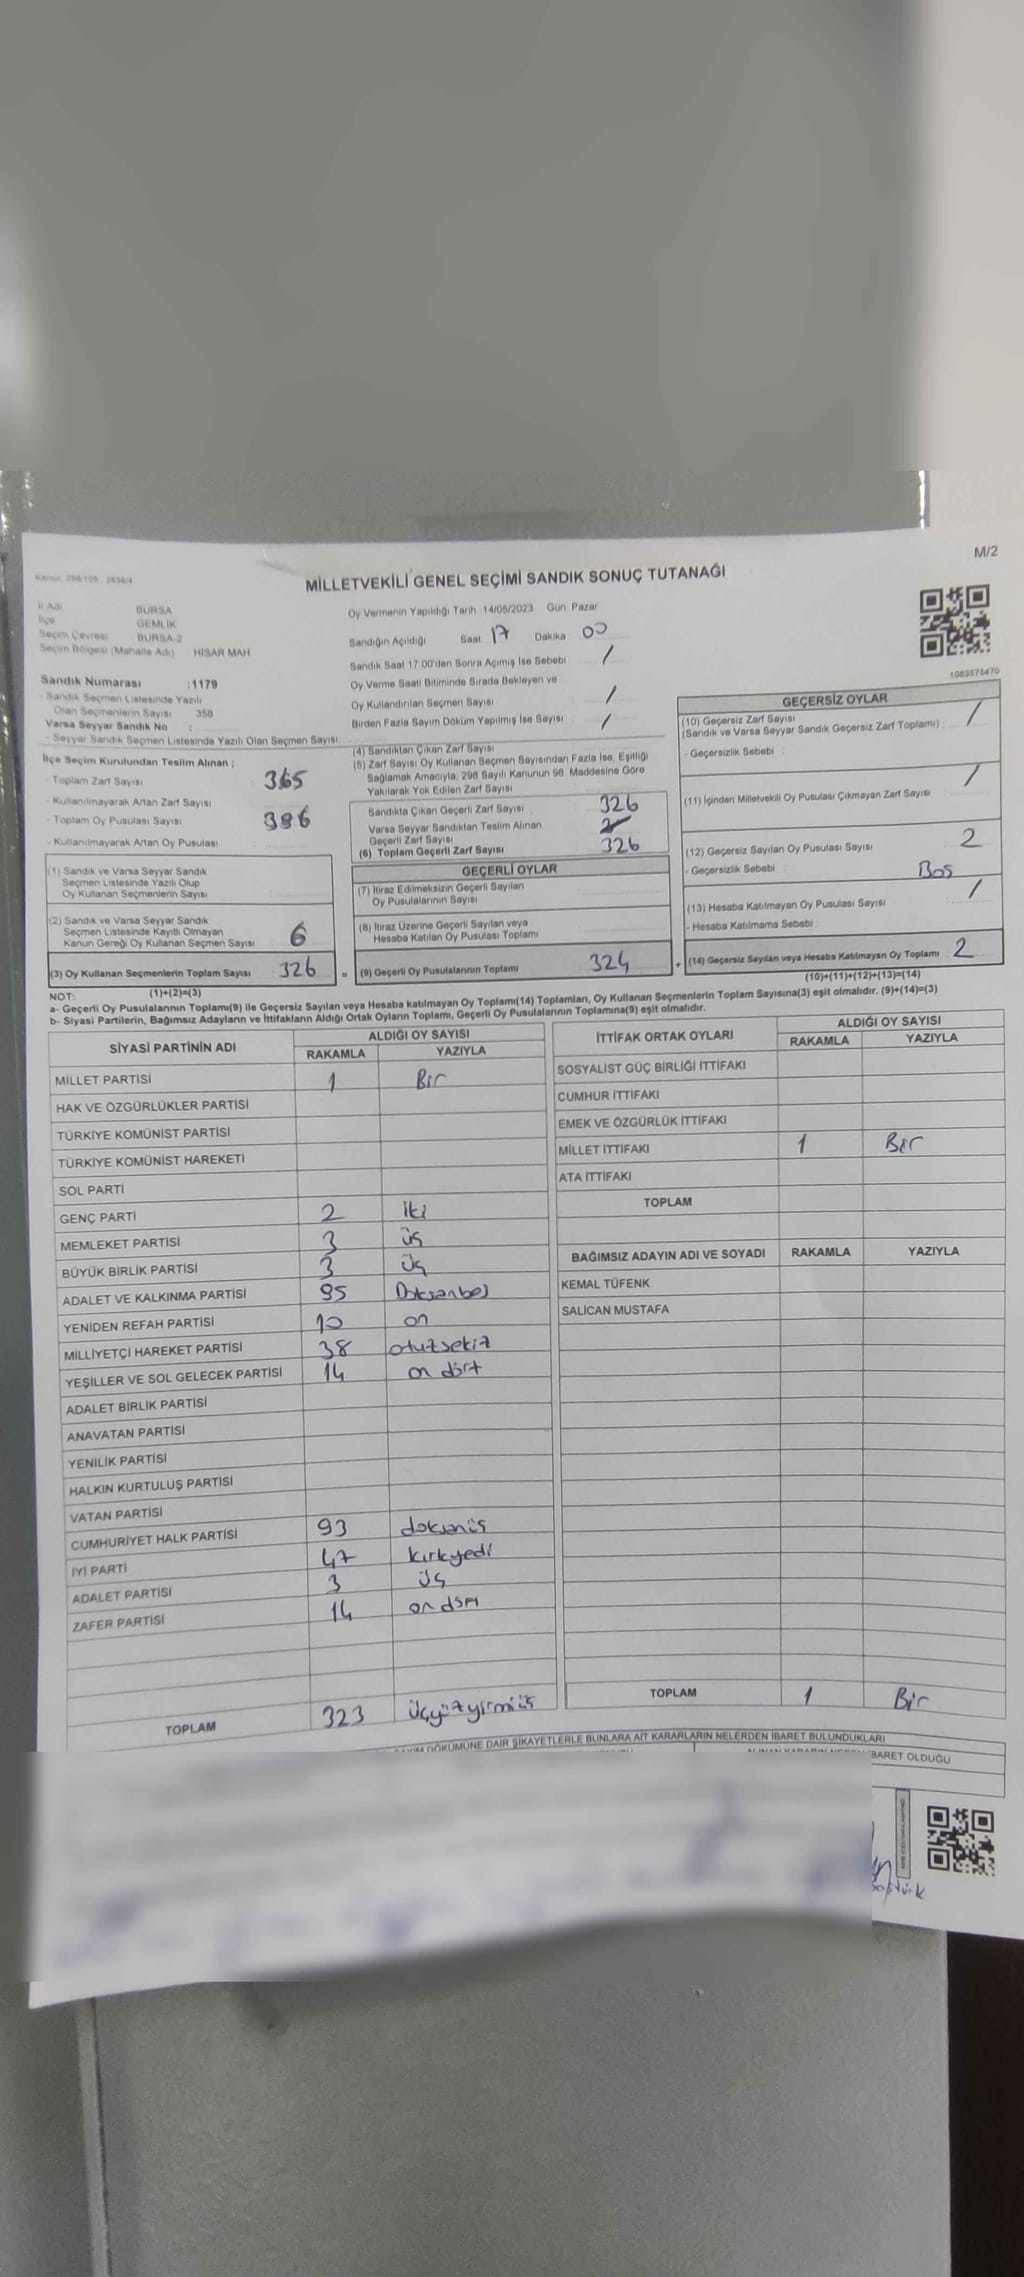 M/2
Kanun: 298/105 - 2839/4
MİLLETVEKİLİ GENEL SEÇİMİ SANDIK SONUÇ TUTANAĞI
İl Adı BURSA
İlçe GEMLİK
Seçim Çevresi BURSA-2
Seçim Bölgesi (Mahalle Adı) HİSAR MAH
Oy Vermenin Yapıldığı Tarih 14/05/2023 Gün Pazar
Sandığın Açıldığı Saat 17 Dakika : 00
Sandık Saat 17:00'den Sonra Açımış İse Sebebi : /
Oy Verme Saati Bitiminde Sırada Bekleyen ve
Oy Kullandırılan Seçmen Sayısı : /
Birden Fazla Sayım Döküm Yapılmış İse Sayısı : /
1083575470
Sandık Numarası :1179
- Sandık Seçmen Listesinde Yazılı
Olan Seçmenlerin Sayısı 358
Varsa Seyyar Sandık No :
- Seyyar Sandık Seçmen Listesinde Yazılı Olan Seçmen Sayısı:
İlçe Seçim Kurulundan Teslim Alınan ;
- Toplam Zarf Sayısı : 365
- Kullanılmayarak Artan Zarf Sayısı :
- Toplam Oy Pusulası Sayısı : 396
- Kullanılmayarak Artan Oy Pusulası :
(1) Sandık ve Varsa Seyyar Sandık
Seçmen Listesinde Yazılı Olup
Oy Kullanan Seçmenlerin Sayısı
(2) Sandık ve Varsa Seyyar Sandık
Seçmen Listesinde Kayıtlı Olmayan
Kanun Gereği Oy Kullanan Seçmen Sayısı 6
(3) Oy Kullanan Seçmenlerin Toplam Sayısı 326
(1)+(2)=(3)
(4) Sandıktan Çıkan Zarf Sayısı :
(5) Zarf Sayısı Oy Kullanan Seçmen Sayısından Fazla İse, Eşitliği
Sağlamak Amacıyla; 298 Sayılı Kanunun 98. Maddesine Göre
Yakılarak Yok Edilen Zarf Sayısı :
Sandıkta Çıkan Geçerli Zarf Sayısı : 326
Varsa Seyyar Sandıktan Teslim Alınan
Geçerli Zarf Sayısı :
(6) Toplam Geçerli Zarf Sayısı : 326
GEÇERLİ OYLAR
(7) İtiraz Edilmeksizin Geçerli Sayılan
Oy Pusulalarının Sayısı
(8) İtiraz Üzerine Geçerli Sayılan veya
Hesaba Katılan Oy Pusulası Toplamı
= (9) Geçerli Oy Pusulalarının Toplamı 324
GEÇERSİZ OYLAR
(10) Geçersiz Zarf Sayısı
(Sandık ve Varsa Seyyar Sandık Geçersiz Zarf Toplamı) : /
- Geçersizlik Sebebi :
(11) İçinden Milletvekili Oy Pusulası Çıkmayan Zarf Sayısı : /
(12) Geçersiz Sayılan Oy Pusulası Sayısı : 2
- Geçersizlik Sebebi : Boş
(13) Hesaba Katılmayan Oy Pusulası Sayısı : /
- Hesaba Katılmama Sebebi :
+ (14) Geçersiz Sayılan veya Hesaba Katılmayan Oy Toplamı 2
(10)+(11)+(12)+(13)=(14)
NOT:
a- Geçerli Oy Pusulalarının Toplamı(9) ile Geçersiz Sayılan veya Hesaba katılmayan Oy Toplamı(14) Toplamları, Oy Kullanan Seçmenlerin Toplam Sayısına(3) eşit olmalıdır. (9)+(14)=(3)
b- Siyasi Partilerin, Bağımsız Adayların ve İttifakların Aldığı Ortak Oyların Toplamı, Geçerli Oy Pusulalarının Toplamına(9) eşit olmalıdır.
SİYASİ PARTİNİN ADI
ALDIĞI OY SAYISI
RAKAMLA YAZIYLA
MİLLET PARTİSİ 1 Bir
HAK VE ÖZGÜRLÜKLER PARTİSİ
TÜRKİYE KOMÜNİST PARTİSİ
TÜRKİYE KOMÜNİST HAREKETİ
SOL PARTİ
GENÇ PARTİ 2 iki
MEMLEKET PARTİSİ 3 üç
BÜYÜK BİRLİK PARTİSİ 3 üç
ADALET VE KALKINMA PARTİSİ 95 Doksanbeş
YENİDEN REFAH PARTİSİ 10 on
MİLLİYETÇİ HAREKET PARTİSİ 38 otuzsekiz
YEŞİLLER VE SOL GELECEK PARTİSİ 14 on dört
ADALET BİRLİK PARTİSİ
ANAVATAN PARTİSİ
YENİLİK PARTİSİ
HALKIN KURTULUŞ PARTİSİ
VATAN PARTİSİ
CUMHURİYET HALK PARTİSİ 93 doksanüç
İYİ PARTİ 47 kırkyedi
ADALET PARTİSİ 3 üç
ZAFER PARTİSİ 14 on dört
TOPLAM 323 üçyüzyirmiüç
İTTİFAK ORTAK OYLARI
ALDIĞI OY SAYISI
RAKAMLA YAZIYLA
SOSYALİST GÜÇ BİRLİĞİ İTTİFAKI
CUMHUR İTTİFAKI
EMEK VE ÖZGÜRLÜK İTTİFAKI
MİLLET İTTİFAKI 1 Bir
ATA İTTİFAKI
TOPLAM
BAĞIMSIZ ADAYIN ADI VE SOYADI RAKAMLA YAZIYLA
KEMAL TÜFENK
SALİCAN MUSTAFA
TOPLAM 1 Bir
DÖKÜMÜNE DAİR ŞİKAYETLERLE BUNLARA AİT KARARLARIN NELERDEN İBARET BULUNDUKLARI
BARET OLDUĞU